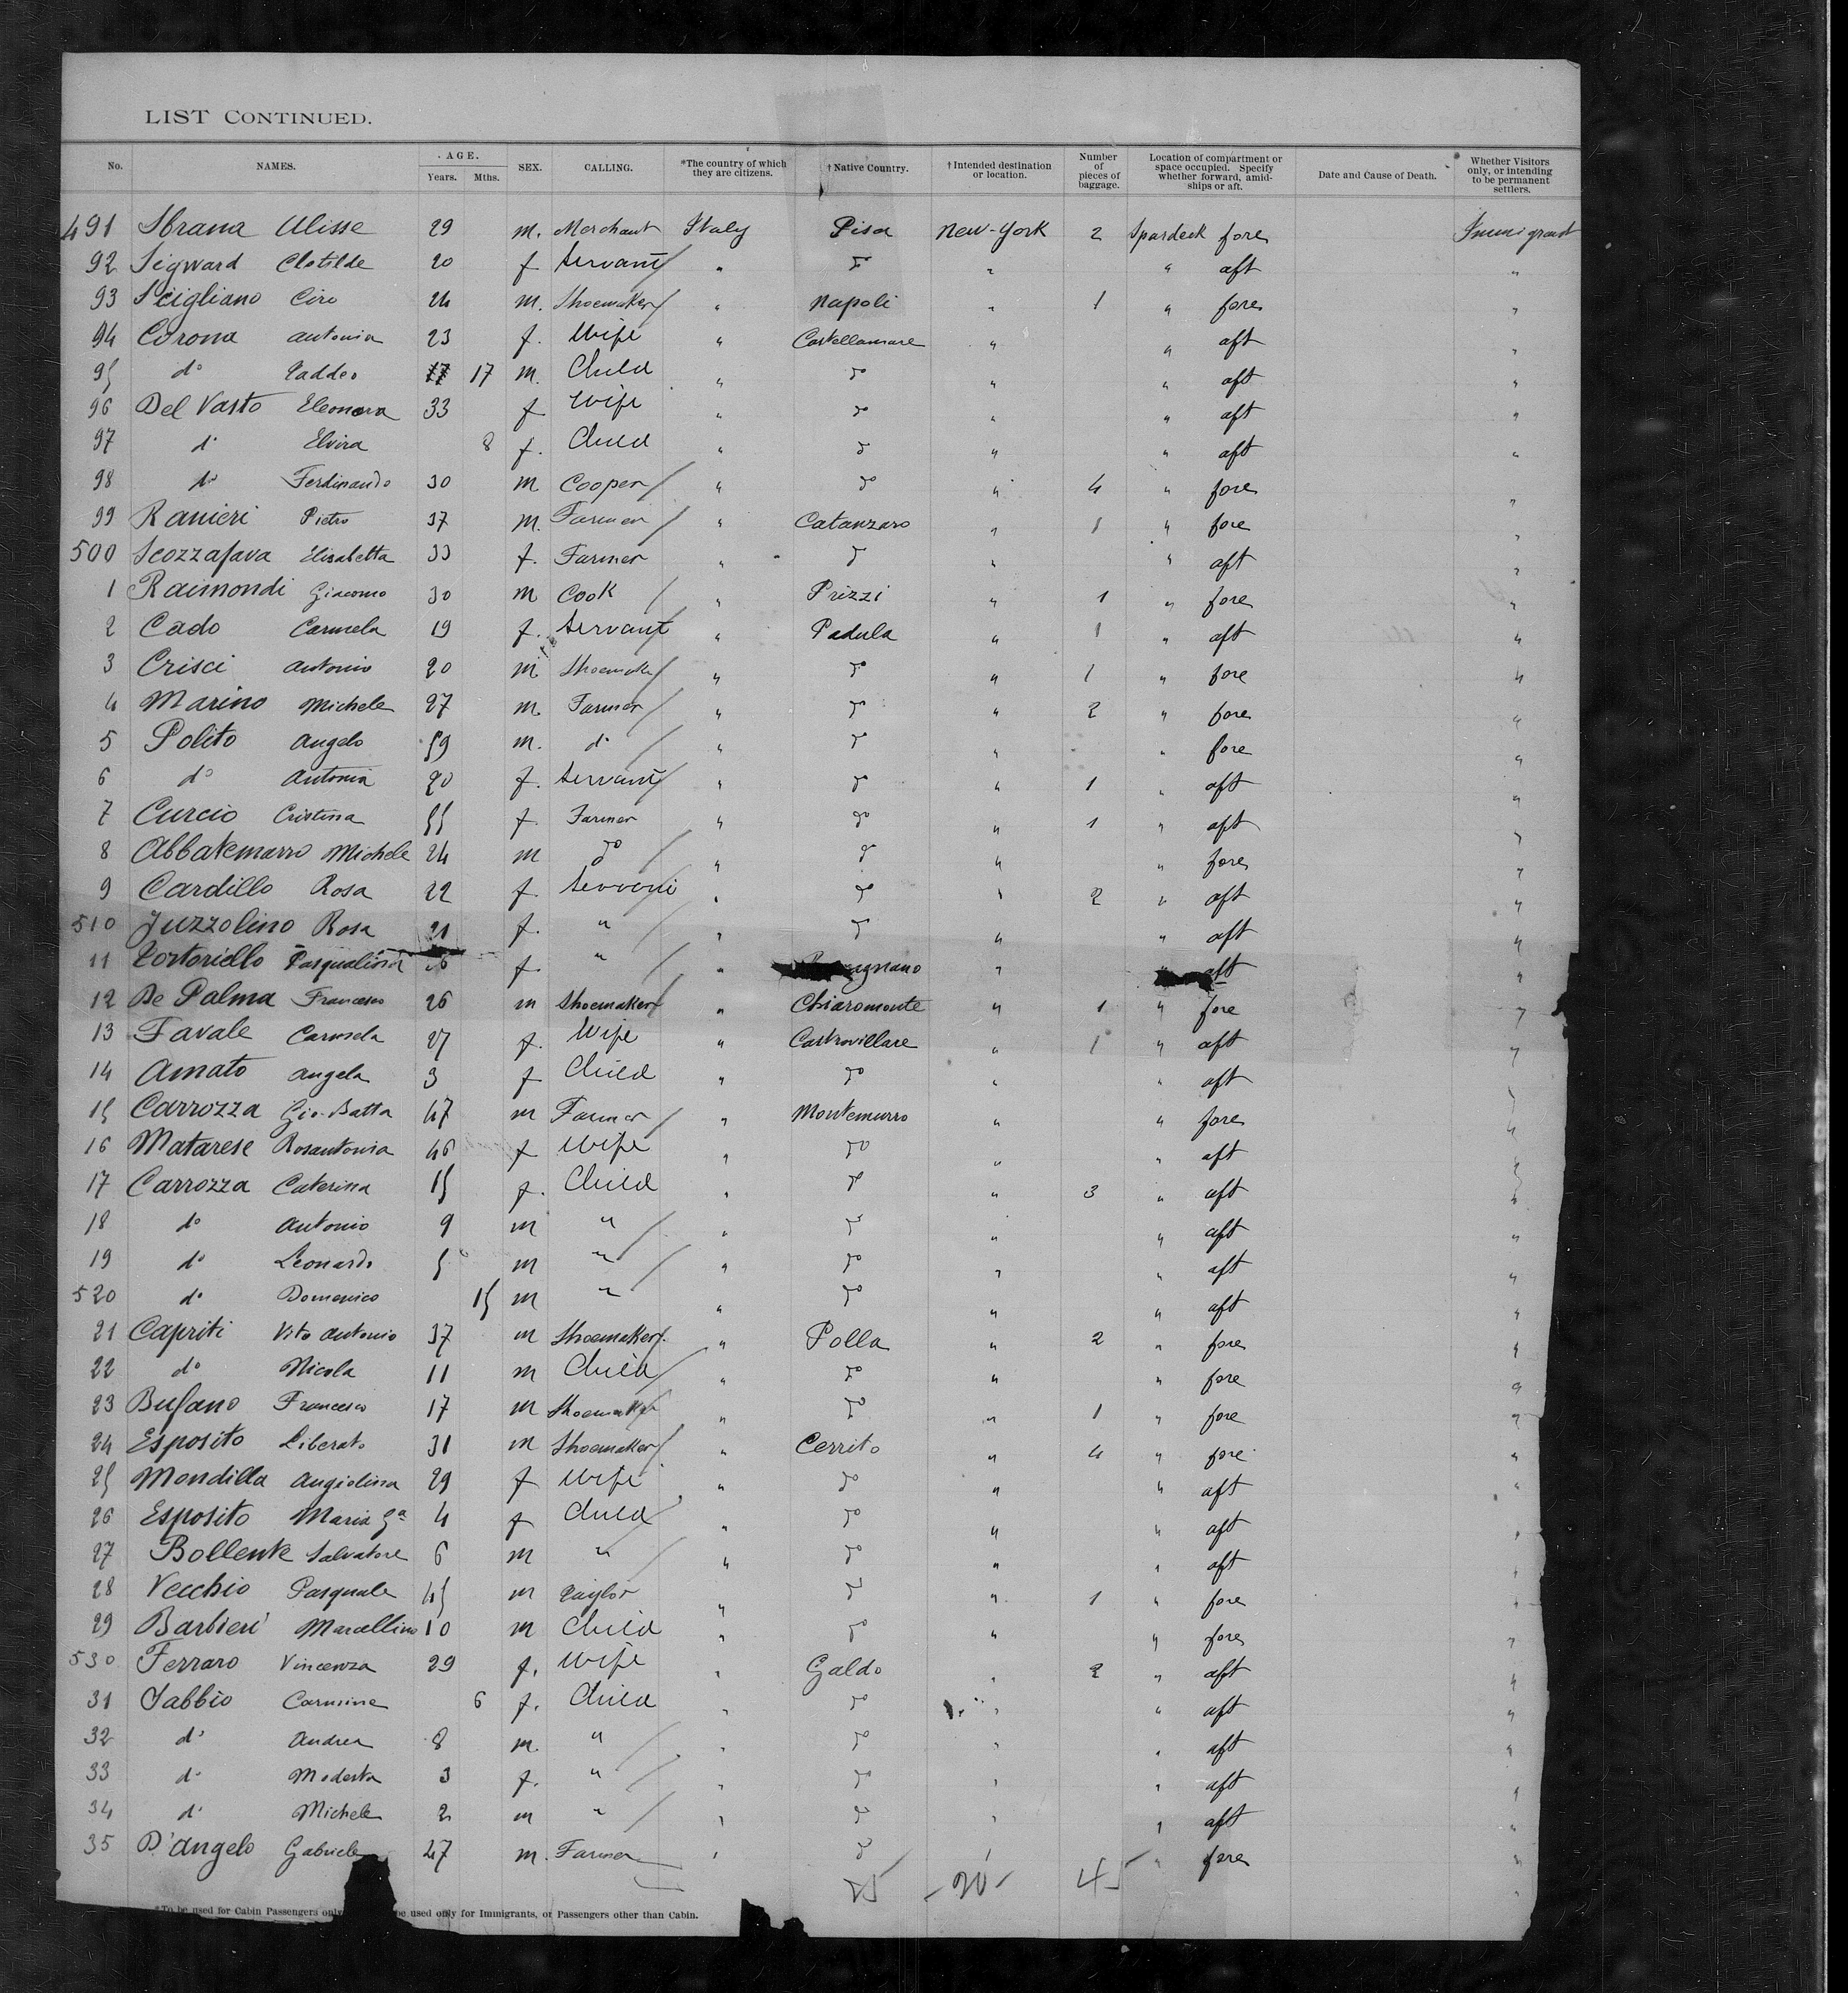 LIST CONTINUED.
No. NAMES. AGE. Years. Mths. SEX. CALLING. *The country of which they are citizens. †Native Country. †Intended destination or location. Number of pieces of baggage. Location of compartment or space occupied. Specify whether forward, amidships or aft. Date and Cause of Death. Whether Visitors only, or intending to be permanent settlers.
491 Sbrana Ulisse 29 m. Merchant Italy Pisa New-York 2 Spardeck fore Immigrant
92 Sigward Clotilde 20 f Servant " do " " aft "
93 Scigliano Ciro 24 m. Shoemaker " Napoli " 1 " fore "
94 Corona Antonia 23 f. Wife " Castellamare " " aft "
95 do Taddeo 17 m. Child " do " " aft "
96 Del Vasto Eleonora 33 f Wife " do " " aft "
97 do Elvira 8 f. Child " do " " aft "
98 do Ferdinando 30 m Cooper " do " 4 " fore "
99 Ranieri Pietro 37 m. Farmer " Catanzaro " 1 " fore "
500 Scozzafava Elisabetta 33 f. Farmer " do " " aft "
1 Raimondi Giacomo 30 m Cook " Prizzi " 1 " fore "
2 Cado Carmela 19 f. Servant " Padula " 1 " aft "
3 Crisci Antonio 20 m Shoemaker " do " 1 " fore "
4 Marino Michele 27 m. Farmer " do " 2 " fore "
5 Polito Angelo 59 m. do " do " " fore "
6 do Antonia 20 f. Servant " do " 1 " aft "
7 Curcio Cristina 55 f. Farmer " do " 1 " aft "
8 Abbatemarro Michele 24 m do " do " " fore "
9 Cardillo Rosa 22 f. Servant " do " 2 " aft "
510 Juzzolino Rosa 21 f. " " do " " aft "
11 Tortoriello Pasqualina f. " " " aft "
12 De Palma Francesco 26 m Shoemaker " Chiaromonte " 1 " fore "
13 Favale Carmela 27 f. Wife " Castrovillare " 1 " aft "
14 Amato Angela 3 f Child " do " " aft "
15 Carrozza Gio. Batta 47 m Farmer " Montemurro " " fore "
16 Matarese Rosantonia 46 f Wife " do " " aft "
17 Carrozza Caterina 15 f. Child " do " 3 " aft "
18 do Antonio 9 m " " do " " aft "
19 do Leonardo 5 m " " do " " aft "
520 do Domenico 15 m " " do " " aft "
21 Capriti Vito Antonio 37 m Shoemaker " Polla " 2 " fore "
22 do Nicola 11 m Child " do " " fore "
23 Bufano Francesco 17 m Shoemaker " do " 1 " fore "
24 Esposito Liberato 31 m Shoemaker " Cerrito " 4 " fore "
25 Mondilla Angiolina 29 f Wife " do " " aft "
26 Esposito Maria Ga 4 f Child " do " " aft "
27 Bollente Salvatore 6 m " " do " " aft "
28 Vecchio Pasquale 45 m Taylor " do " 1 " fore "
29 Barbieri Marcellino 10 m Child " do " " fore "
530 Ferraro Vincenza 29 f. Wife " Galdo " 2 " aft "
31 Sabbio Carmine 6 f. Child " do " " aft "
32 do Andrea 8 m. " " do " " aft "
33 do Modesta 3 f. " " do " " aft "
34 do Michele 2 m " " do " " aft "
35 D'Angelo Gabriele 47 m. Farmer " do " " fore "
20 45
*To be used for Cabin Passengers only be used only for Immigrants, or Passengers other than Cabin.